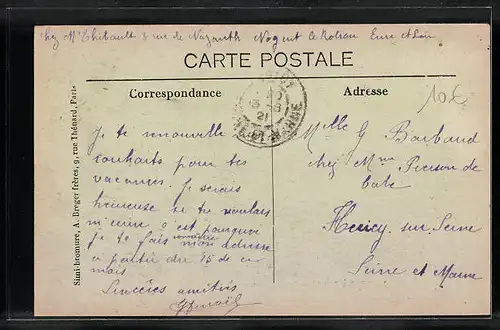 chez Mr Thibault 8 rue de Nazareth Nogent le Rotrou Eure et Loir
CARTE POSTALE
Correspondance
Adresse
10€
21
MARNE
Simi-bromure, A. Breger frères, 9, rue Thénard, Paris
Je te renouvelle
souhaits pour tes
vacances. Je serais
heureuse si tu voulais
m'écrire c'est pourquoi
je te fais connaître mon adresse
à partir du 15 de ce
mois
Sincères amitiés
Melle G Barbaud
chez Mme
Héricy sur Seine
Seine et Marne